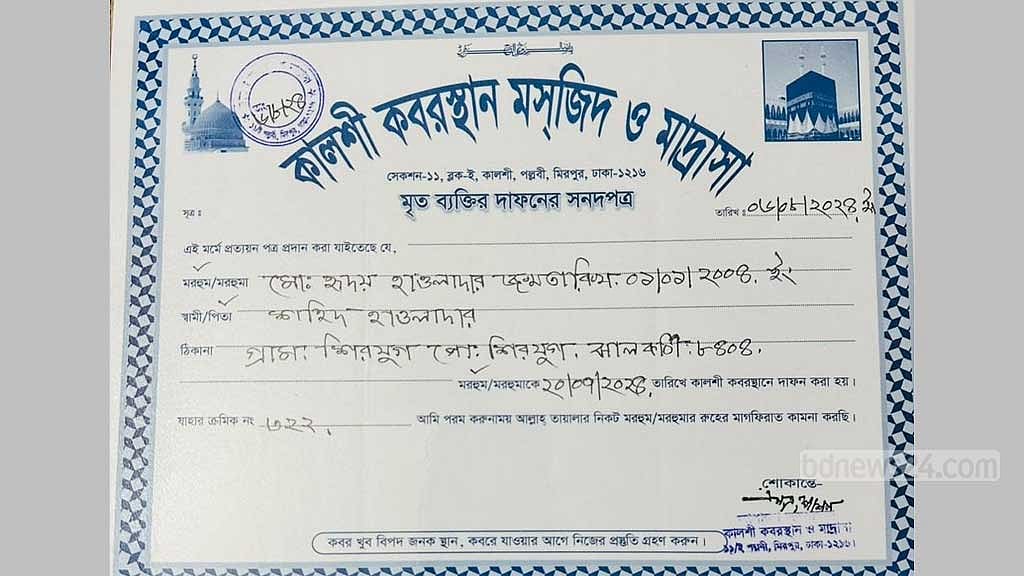 কালশী কবরস্থান মসজিদ ও মাদ্রাসা
সেকশন-১১, ব্লক-ই, কালশী, পল্লবী, মিরপুর, ঢাকা-১২১৬
মৃত ব্যক্তির দাফনের সনদপত্র
সূত্র ঃ তারিখ ঃ ০৬/০৮/২০২৪ ইং
এই মর্মে প্রত্যয়ন পত্র প্রদান করা যাইতেছে যে,
মরহুম/মরহুমা মোঃ হৃদয় হাওলাদার জন্মতারিখ. ০১/০১/২০০৪. ইং
স্বামী/পিতা শাহিদ হাওলাদার
ঠিকানা গ্রামঃ শিরযুগ পোঃ শিরযুগ. ঝালকাঠী. ৮৪০৪.
মরহুম/মরহুমাকে ২০/০৭/২০২৪, তারিখে কালশী কবরস্থানে দাফন করা হয়।
যাহার ক্রমিক নং ৩২২. আমি পরম করুনাময় আল্লাহ্ তায়ালার নিকট মরহুম/মরহুমার রুহের মাগফিরাত কামনা করছি।
bdnews24.com
শোকান্তে-
কালশী কবরস্থান ও মাদ্রাসা
১১/ই পল্লবী, মিরপুর, ঢাকা-১২১৬।
কবর খুব বিপদ জনক স্থান, কবরে যাওয়ার আগে নিজের প্রস্তুতি গ্রহণ করুন।